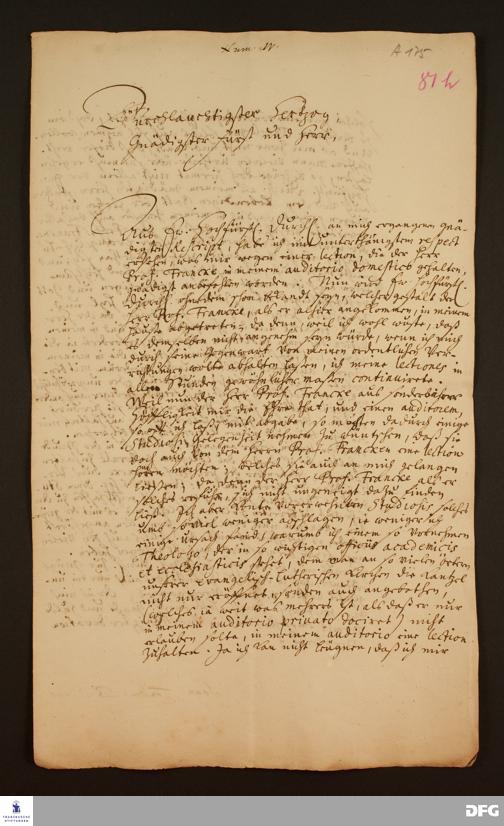 Num. IV.
A 175
81 h
Durchlauchtigster Hertzog,
Gnädigster Fürst und Herr,
Auß Ew. Hochfürstl. Durchl. an mich ergangenem gnä-
digsten Rescript, habe ich mit unterthänigstem respect
ersehen, was mir wegen einer lection, die der Herr
Prof. Francke in meinem auditorio domestico gehalten,
gnädigst anbefohlen worden. Nun wird Ew. Hochfürstl.
Durchl. ohne dem schon bekandt seyn, welcher gestalt der
Herr Prof. Francke, als er alhier angekommen, in meinem
Hause abgetreten; da denn, weil ich wohl wuste, daß
es demselben nicht angenehm seyn würde, wenn ich mich
durch seine Gegenwart von meinen ordentlichen Ver-
richtungen wolte abhalten laßen, ich meine lectiones in
allen Stunden gewöhnlicher maßen continuirete.
Weil nun der Herr Prof. Francke auß sonderbahrer
Höfligkeit mir die Ehre that, und einen auditorem,
so offt ich laß, mit abgabe, so mochten dadurch einige
Studiosi gelegenheit nehmen zu wünschen, daß sie
doch auch von dem Herrn Prof. Francken eine lection
hören möchten; welches sie auch an mich gelangen
ließen; da denn der Herr Prof. Francke als er
solches erfuhr, sich nicht ungeneigt dazu finden
ließ. Ich aber konte vorerwehnten Studiosis solches
umb so viel weniger abschlagen, je weniger ich
einige ursach fand, warumb ich einem so vornehmen
Theologo, der in so wichtigen officiis academicis
et ecclesiasticis stehet, dem man an so vielen örtern
unserer Evangelisch-Lutherischen Kirchen die Cantzel
nicht nur eröffnet, sondern auch angebothen,
(welches ja weit was mehrers ist, als daß er nur
in meinem auditorio privato dociret) nicht
erlauben solte, in meinem auditorio eine lection
zuhalten. Ja ich kan nicht leugnen, daß ich mir
FRANCKESCHE
STIFTUNGEN
DFG